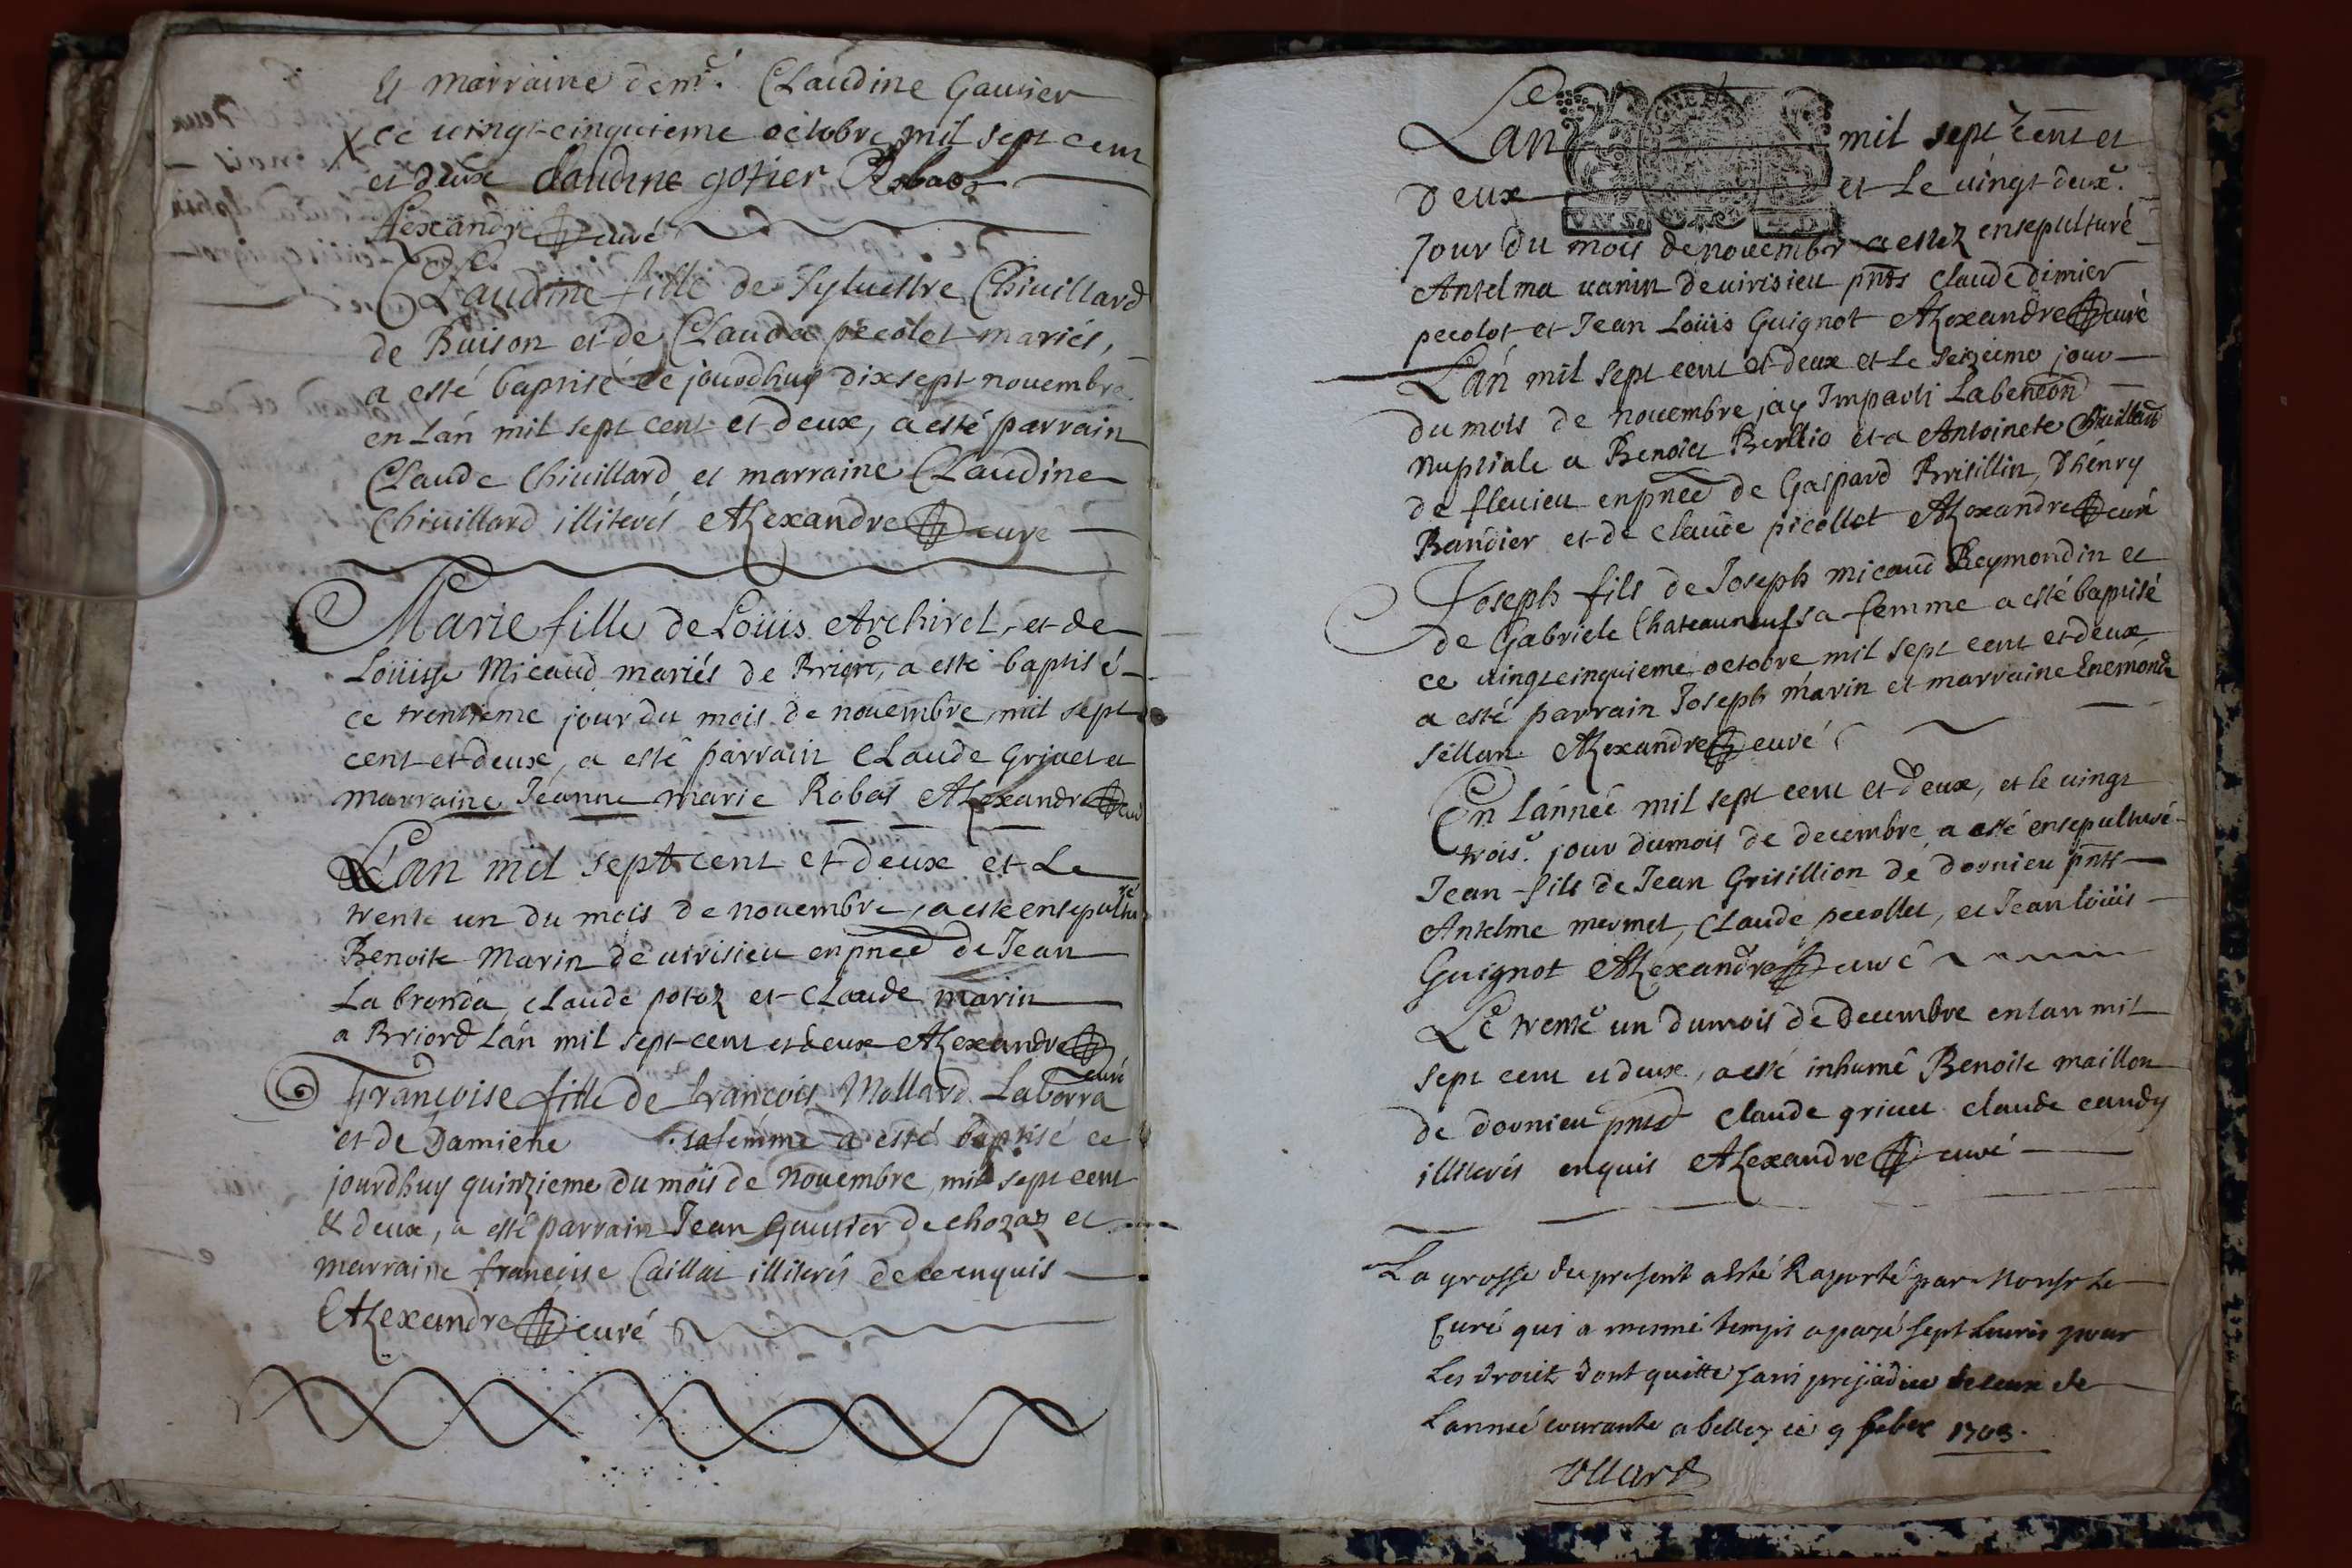 et marraine dem.^e Claudine Gautier
ce vingt-cinquieme octobre mil sept cent
et deux Claudine gotier Robat
Alexandre curé
Claudine fille de Syluestre Chiuillard
de Buison et de Clauda pecolet mariés,
a esté baptisé ce jourdhuy dix sept nouembre
en Lán mil sept cent et deux, a esté parrain
Claude Chiuillard et marraine Claudine
Chiuillard illiterés Alexandre curé
Marie fille de Loüis Archirel, et de
Loüise Micaud mariés de Briord, a esté baptisé
ce trentieme jour du mois de nouembre mil sept
cent et deux, a esté parrain Claude Griuet et
marraine Jeanne marie Robat Alexandre curé
L'an mil sept cent et deux et Le
trente un du mois de nouembre, a esté ensepulturé
Benoite Marin de uirisieu en pnce de Jean
La bronda, Claude potoz et Claude marin
a Briord Lán mil sept cent et deux Alexandre
curé
Françoise fille de françois Mollard Laborra
et de Damiene sa femme a esté baptisé ce
jourdhuy quinzieme du mois de Nouembre mil sept cent
& deux, a esté parrain Jean Gautier de chozaz et
marraine françoise Caillat illiterés de ce enquis
Alexandre curé
Lan mil sept cent et
deux et Le uingt deux.^e
Jour du mois de nouembre a estez ensepulturé
Antelma uanin de uirisieu pnts Claude Dimier
pecolot et Jean Loüis Guignot Alexandre curé
Lán mil sept cent et deux et Le seizieme jour
du mois de nouembre jay Imparti La benëon
nuptiale a Benoict Berllio et a Antoinete Chiuillard
de fleuieu en pnce de Gaspard Brisillin, d'hénry
Bandier et de Claude picollet Alexandre curé
Joseph fils de Joseph micaud Reymondin et
de Gabriele Chateauneuf sa femme a esté baptisé
ce uingt cinquieme octobre mil sept cent et deux,
a esté parrain Joseph marin et marraine Enemonde
séllan Alexandre curé
En Lánnée mil sept cent et deux, et le uingt
trois.^e jour du mois de decembre a esté ensepulturé
Jean fils de Jean Grisillion de dornieu pnts
Antelme mermet, Claude pecollet, et Jean loüis
Guignot Alexandre curé
Le trente un du mois de Decembre en lan mil
sept cent et deux, a esté inhumé Benoite maillon
de dornieu pnts Claude griuet Claude candy
illiterés enquis Alexandre curé
La grosse du present a esté Raporté par Monsr Le
Curé qui a mesme temps a payé sept liures pour
Les droits dont quitte sans prejudice de ceux de
Lannée courante a belley ce 9 feber 1703.